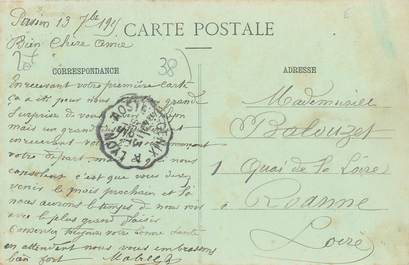 13 7bre 191
CARTE POSTALE
Bien Chère Amie
38
CORRESPONDANCE
ADRESSE
En recevant votre première carte
ça a été pour nous grande
Surprise de vous
mais un grand
recevant
votre départ mais ce qui nous
console c'est que vous devez
venir le mois prochain et là
nous aurons le temps de nous voir
avec le plus grand plaisir
Conservez toujours votre bonne santé
en attendant nous vous embrassons
bien fort
LYON
Mademoiselle
Balouzet
1 Quai de la Loire
Roanne
Loire